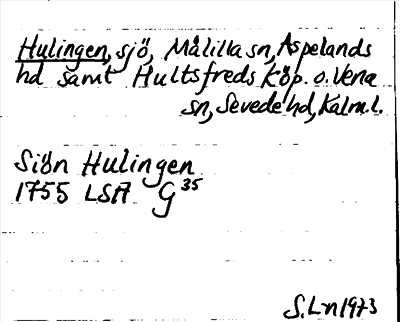 Hulingen, sjö, Målilla sn, Aspelands
hd samt Hultsfreds köp. o. Vena
sn, Sevede hd, Kalm. l.
Siön Hulingen
1755 LSA G 35
S. Ln 1973